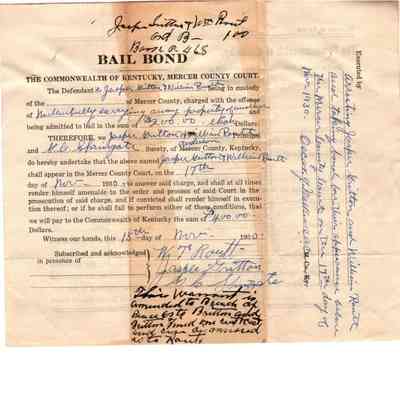 Jasper Gritton & Wm Routt
Ord B- 100
Book R 465
BAIL BOND
THE COMMONWEALTH OF KENTUCKY, MERCER COUNTY COURT.
The Defendant s Jasper Gritton & William Routt being in custody
of the of Mercer County, charged with the offense
of
being admitted to bail in the sum of $200.00 each
THEREFORE, we Jasper Gritton and William Routt Principal
and Surety, of Mercer County, Kentucky,
do hereby undertake that the above named Jasper Gritton & William Routt
shall appear in the Mercer County Court, on the 17th
day of Nov- 1930 to answer said charge, and shall at all times
render himself amenable to the order and process of said Court in the
prosecution of said charge, and if convicted shall render himself in execu-
tion thereof; or if he shall fail to perform either of these conditions, that
we will pay to the Commonwealth of Kentucky the sum of $200.00
Dollars.
Witness our hands, this 15th day of Nov. 1930
Subscribed and acknowledged
in presence of
Wm Routt
Jasper Gritton
This warrant is
amended to Breach of
Peace as to Gritton and
Gritton fined one cent & cost
and case dismissed
as to Routt
Executed by
arresting Jasper Gritton and William Routt
and taking bond for their appearance before
the Mercer County Court on the 17th day of
Nov. 1930.